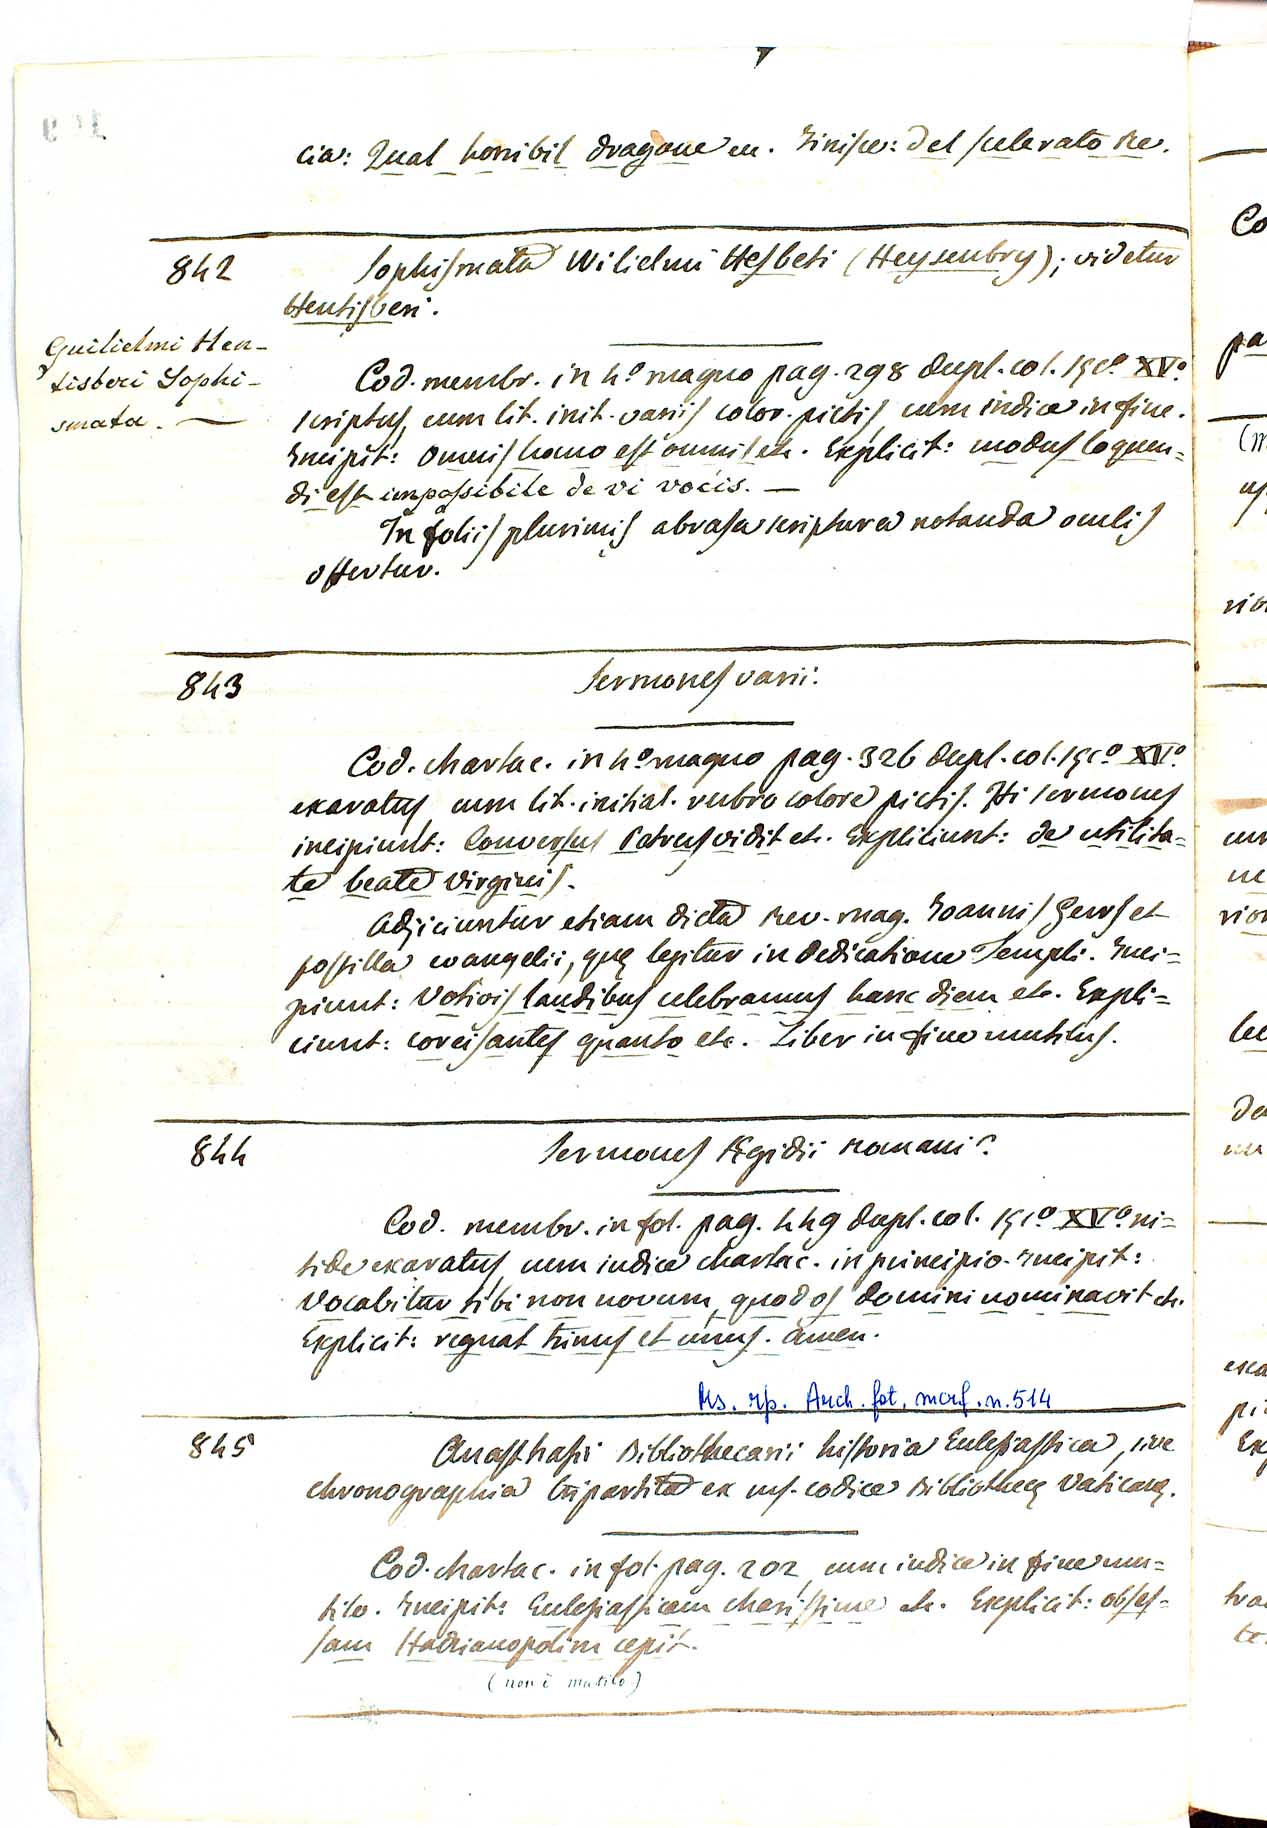 cia: Qual horribil dragone ec. Finisce: Del scelerato Re.
842
Sophismata Wilielmi Hesbeti (Heysenbry); videtur
Hentisberi.
Guilielmi Hen-
tisberi Sophi-
smata. —
Cod. membr. in 4º magno pag. 298 dupl. col. XVº
scriptus, cum lit. init. variis color. pictis, cum indice in fine.
Incipit: Omnis homo est omnis etc. Explicit: modus loquen=
di est impossibile de vi vocis. —
In foliis plurimis abrasa scriptura notanda oculis
offertur.
843
Sermones varii.
Cod. chartac. in 4º magno pag. 326 dupl. col. XVº
exaratus, cum lit. initial. rubro colore pictis. Hi sermones
incipiunt: Conversus Petrus vidit etc. Expliciunt: de utilita=
te beate Virginis.
Adjiciuntur etiam dicta Rev. mag. Joannis Gers et
postilla evangelii, quę legitur in dedicatione Templi. Inci=
piunt: Votivis laudibus celebramus hanc diem etc. Expli=
ciunt: coreisantes quanto etc. Liber in fine mutilus.
844
Sermones Ægidii Romani?
Cod. membr. in fol. pag. 449 dupl. col. XVº ni=
tide exaratus, cum indice chartac. in principio. Incipit:
Vocabitur tibi nomen novum, quod os domini nominavit etc.
Explicit: regnat trinus et unus. amen.
Ms. rp. Arch. fot. mcrf. n. 514
845
Anasthasii Bibliothecarii historia Eclesiastica, sive
chronographia tripartita ex ms. codice Bibliothecę Vaticanę.
Cod. chartac. in fol. pag. 202, cum indice in fine mu=
tilo. Incipit: Eclesiasticam charissime etc. Explicit: obses=
sam Hadrianopolim cepit.
(non è mutilo)